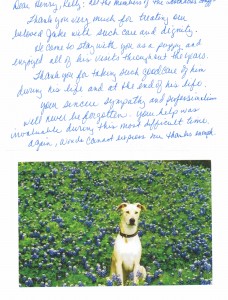 Dear Henry, Kelly, all the members of the
Thank you very much for treating our
beloved Jake with such care and dignity.
He came to stay with you as a puppy and
enjoyed all of his visits throughout the years.
Thank you for taking such good care of him
during his life and at the end of his life.
Your sincere sympathy and
will never be forgotten. Your help was
invaluable during this most difficult time.
Again, words cannot express our thanks enough.